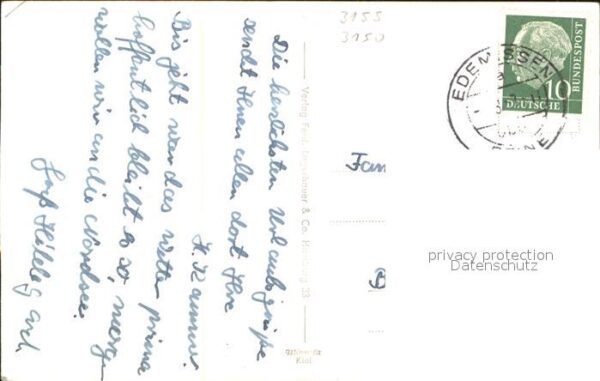 Die herzlichsten Urlaubsgrüße
sendet Ihnen allen dort Ihre
H. Kramme.
Bis jetzt war das Wetter prima
hoffentlich bleibt es so, morgen
wollen wir an die Nordsee.
Gruß
3155
3150
Verlag Ferd. & Co. Hamburg 33
Kiel
Fam
EDEMISSEN
PEINE
10
DEUTSCHE
BUNDESPOST
privacy protection
Datenschutz